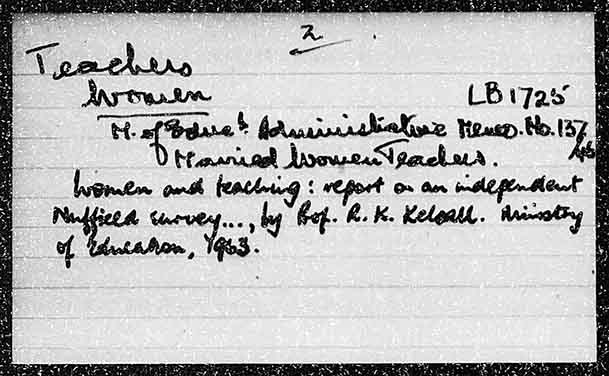 2
Teachers
Women
LB 1725
M. of Educ. Administrative Memo. No. 137
Married Women Teachers.
Women and teaching: report on an independent
Nuffield survey..., by Prof. R. K. Kelsall. Ministry
of Education, 1963.